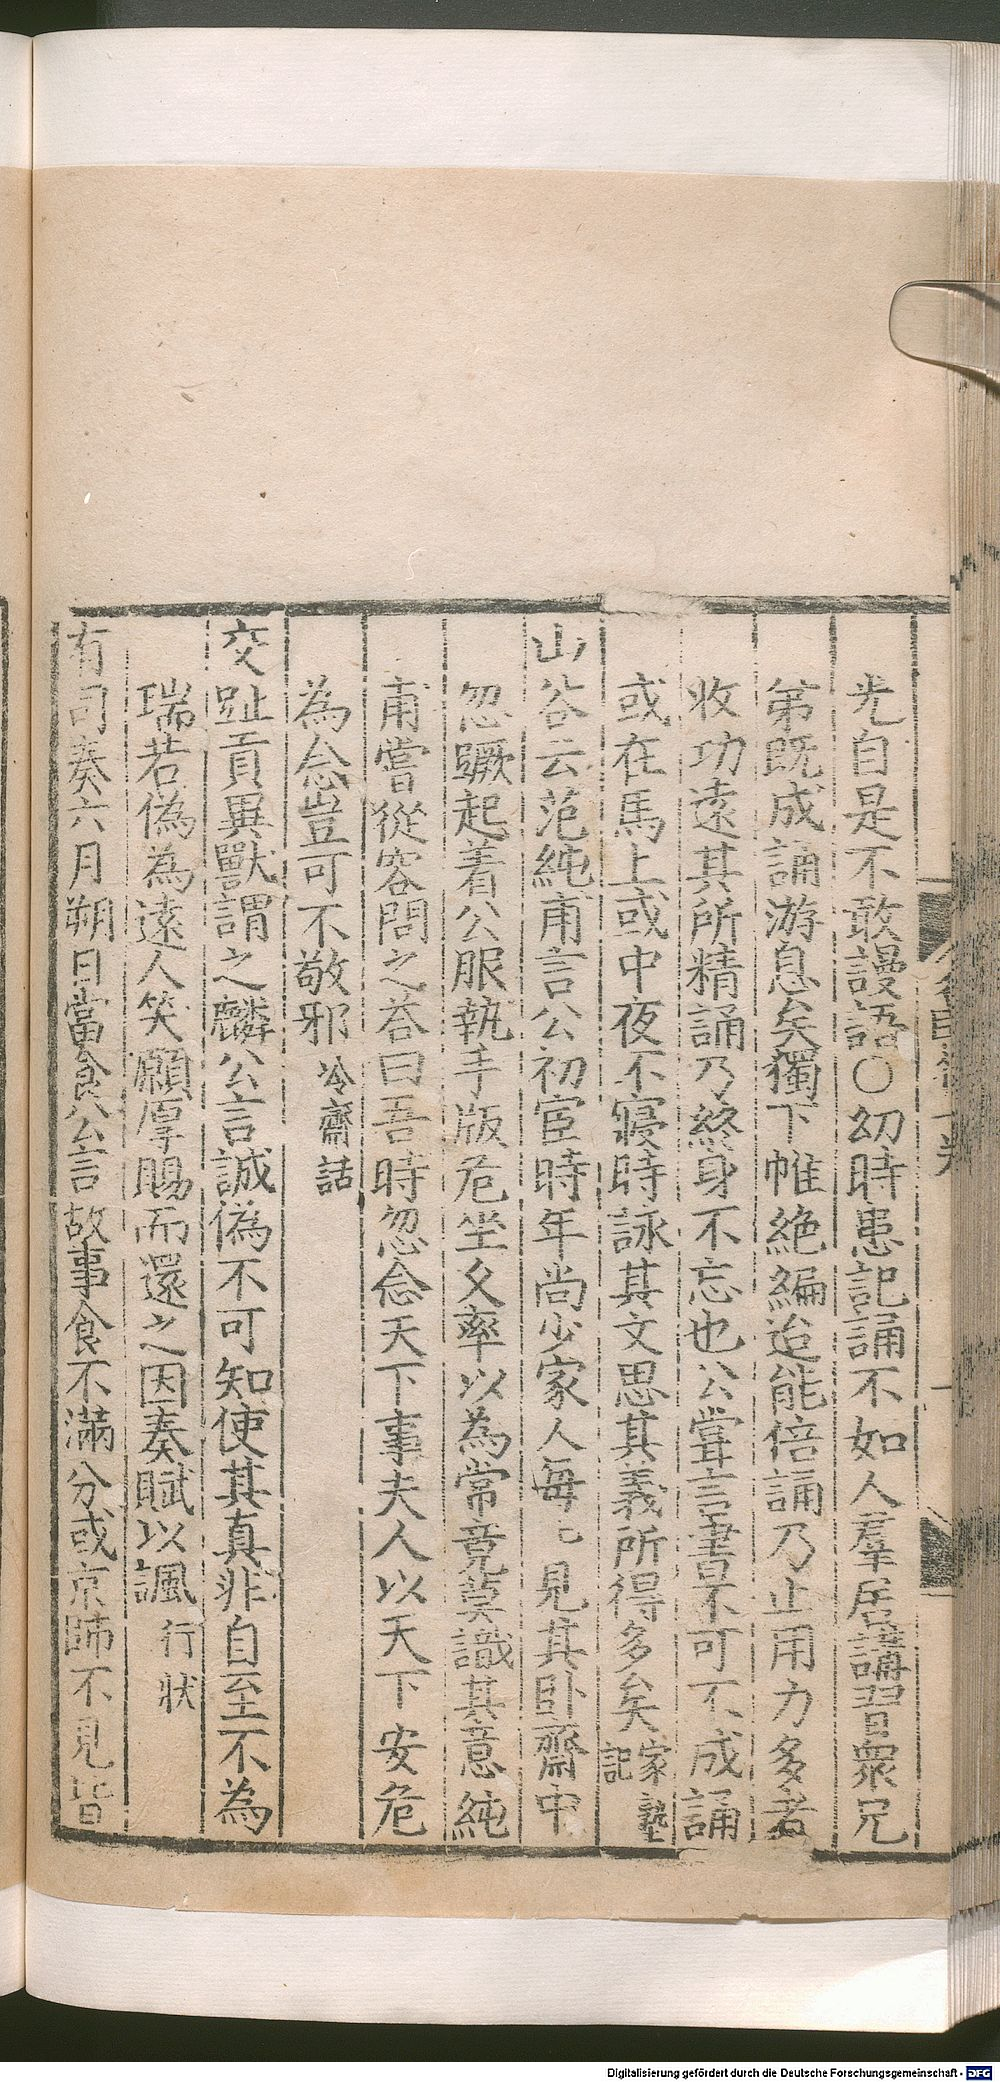 光自是不敢謾語○幼時患記誦不如人羣居講習衆兄
第既成誦游息矣獨下帷絶編迨能倍誦乃止用力多者
收功遠其所精誦乃終身不忘也公嘗言書不可不成誦
或在馬上或中夜不寢時詠其文思其義所得多矣家塾記
山谷云范純甫言公初宦時年尚少家人每〻見其卧齋中
忽蹶起着公服執手版危坐乆率以為常竟莫識其意純
甫嘗從容問之荅曰吾時忽念天下事夫人以天下安危
為念豈可不敬邪冷齋話
交趾貢異獸謂之麟公言誠偽不可知使其真非自至不為
瑞若偽為遠人笑願厚賜而還之因奏賦以諷行狀
有司奏六月朔日當食公言故事食不滿分或京師不見皆
Digitalisierung gefördert durch die Deutsche Forschungsgemeinschaft - DFG